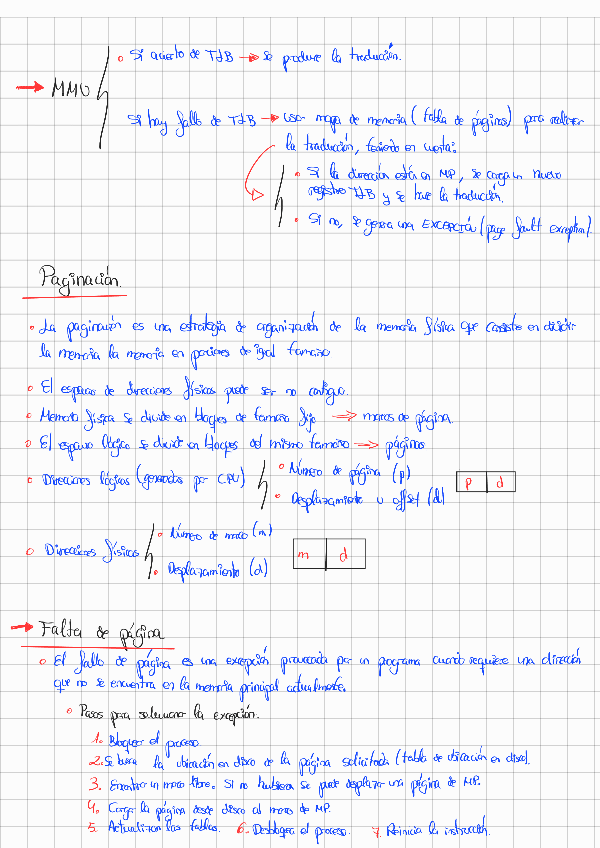 • Si acierto de TLB → se produce la traducción.
→ MMU
Si hay fallo de TLB → usar mapa de memoria (tabla de páginas) para realizar
la traducción, teniendo en cuenta:
• Si la dirección está en MP, se carga un nuevo
registro TLB y se hace la traducción.
• Si no, se genera una EXCEPCIÓN (page fault exception).
Paginación.
• La paginación es una estrategia de organización de la memoria física que consiste en dividir
la memoria la memoria en porciones de igual tamaño
• El espacio de direcciones físicas puede ser no contiguo.
• Memoria física se divide en bloques de tamaño fijo ⇒ marcos de página.
• El espacio lógico se divide en bloques del mismo tamaño → páginas
• Direcciones lógicas (generadas por CPU)
• Número de página (p)
• Desplazamiento u offset (d)
p d
• Direcciones físicas
• Número de marco (m)
• Desplazamiento (d)
m d
→ Falta de página
• El fallo de página es una excepción provocada por un programa cuando requiere una dirección
que no se encuentra en la memoria principal actualmente.
• Pasos para solucionar la excepción.
1. Bloquear el proceso
2. Se busca la ubicación en disco de la página solicitada (tabla de ubicación en disco).
3. Encontrar un marco libre. Si no hubiera se puede desplazar una página de MP.
4. Carga la página desde disco al marco de MP.
5. Actualizan las tablas. 6. Desbloquea el proceso. 7. Reinicia la instrucción.